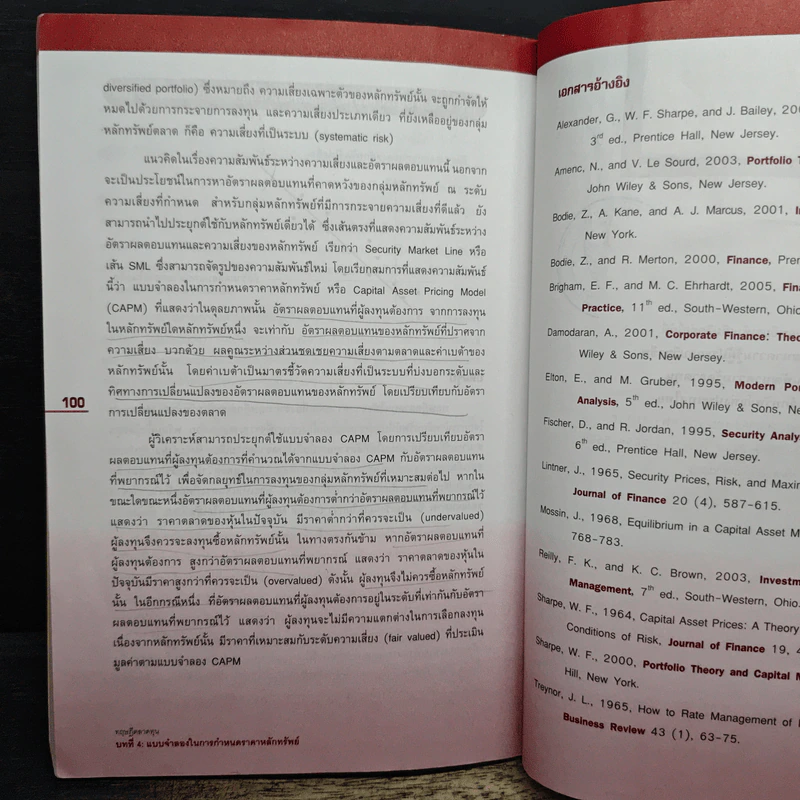 diversified portfolio) ซึ่งหมายถึง ความเสี่ยงเฉพาะตัวของหลักทรัพย์นั้น จะถูกกำจัดให้
หมดไปด้วยการกระจายการลงทุน และความเสี่ยงประเภทเดียว ที่ยังเหลืออยู่ของกลุ่ม
หลักทรัพย์ตลาด ก็คือ ความเสี่ยงที่เป็นระบบ (systematic risk)
แนวคิดในเรื่องความสัมพันธ์ระหว่างความเสี่ยงและอัตราผลตอบแทนนี้ นอกจาก
จะเป็นประโยชน์ในการหาอัตราผลตอบแทนที่คาดหวังของกลุ่มหลักทรัพย์ ณ ระดับ
ความเสี่ยงที่กำหนด สำหรับกลุ่มหลักทรัพย์ที่มีการกระจายความเสี่ยงที่ดีแล้ว ยัง
สามารถนำไปประยุกต์ใช้กับหลักทรัพย์เดี่ยวได้ ซึ่งเส้นตรงที่แสดงความสัมพันธ์ระหว่าง
อัตราผลตอบแทนและความเสี่ยงของหลักทรัพย์ เรียกว่า Security Market Line หรือ
เส้น SML ซึ่งสามารถจัดรูปของความสัมพันธ์ใหม่ โดยเรียกสมการที่แสดงความสัมพันธ์
นี้ว่า แบบจำลองในการกำหนดราคาหลักทรัพย์ หรือ Capital Asset Pricing Model
(CAPM) ที่แสดงว่าในดุลยภาพนั้น อัตราผลตอบแทนที่ผู้ลงทุนต้องการ จากการลงทุน
ในหลักทรัพย์ใดหลักทรัพย์หนึ่ง จะเท่ากับ อัตราผลตอบแทนของหลักทรัพย์ที่ปราศจาก
ความเสี่ยง บวกด้วย ผลคูณระหว่างส่วนชดเชยความเสี่ยงตามตลาดและค่าเบต้าของ
หลักทรัพย์นั้น โดยค่าเบต้าเป็นมาตรชี้วัดความเสี่ยงที่เป็นระบบที่บ่งบอกระดับและ
ทิศทางการเปลี่ยนแปลงของอัตราผลตอบแทนของหลักทรัพย์ โดยเปรียบเทียบกับอัตรา
การเปลี่ยนแปลงของตลาด
100
ผู้วิเคราะห์สามารถประยุกต์ใช้แบบจำลอง CAPM โดยการเปรียบเทียบอัตรา
ผลตอบแทนที่ผู้ลงทุนต้องการที่คำนวณได้จากแบบจำลอง CAPM กับอัตราผลตอบแทน
ที่พยากรณ์ไว้ เพื่อจัดกลยุทธ์ในการลงทุนของกลุ่มหลักทรัพย์ที่เหมาะสมต่อไป หากใน
ขณะใดขณะหนึ่งอัตราผลตอบแทนที่ผู้ลงทุนต้องการต่ำกว่าอัตราผลตอบแทนที่พยากรณ์ไว้
แสดงว่า ราคาตลาดของหุ้นในปัจจุบัน มีราคาต่ำกว่าที่ควรจะเป็น (undervalued)
ผู้ลงทุนจึงควรจะลงทุนซื้อหลักทรัพย์นั้น ในทางตรงกันข้าม หากอัตราผลตอบแทนที่
ผู้ลงทุนต้องการ สูงกว่าอัตราผลตอบแทนที่พยากรณ์ แสดงว่า ราคาตลาดของหุ้นใน
ปัจจุบันมีราคาสูงกว่าที่ควรจะเป็น (overvalued) ดังนั้น ผู้ลงทุนจึงไม่ควรซื้อหลักทรัพย์
นั้น ในอีกกรณีหนึ่ง ที่อัตราผลตอบแทนที่ผู้ลงทุนต้องการอยู่ในระดับที่เท่ากันกับอัตรา
ผลตอบแทนที่พยากรณ์ไว้ แสดงว่า ผู้ลงทุนจะไม่มีความแตกต่างในการเลือกลงทุน
เนื่องจากหลักทรัพย์นั้น มีราคาที่เหมาะสมกับระดับความเสี่ยง (fair valued) ที่ประเมิน
มูลค่าตามแบบจำลอง CAPM
ทฤษฎีตลาดทุน
บทที่ 4: แบบจำลองในการกำหนดราคาหลักทรัพย์
เอกสารอ้างอิง
Alexander, G., W. F. Sharpe, and J. Bailey, 20
3rd ed., Prentice Hall, New Jersey.
Amenc, N., and V. Le Sourd, 2003, Portfolio T
John Wiley & Sons, New Jersey.
Bodie, Z., A. Kane, and A. J. Marcus, 2001, I
New York.
Bodie, Z., and R. Merton, 2000, Finance, Pren
Brigham, E. F., and M. C. Ehrhardt, 2005, Fina
Practice, 11th ed., South-Western, Ohio
Damodaran, A., 2001, Corporate Finance: Theo
Wiley & Sons, New Jersey.
Elton, E., and M. Gruber, 1995, Modern Por
Analysis, 5th ed., John Wiley & Sons, Ne
Fischer, D., and R. Jordan, 1995, Security Analy
6th ed., Prentice Hall, New Jersey.
Lintner, J., 1965, Security Prices, Risk, and Maxin
Journal of Finance 20 (4), 587-615.
Mossin, J., 1968, Equilibrium in a Capital Asset M
768-783.
Reilly, F. K., and K. C. Brown, 2003, Investm
Management, 7th ed., South-Western, Ohio.
Sharpe, W. F., 1964, Capital Asset Prices: A Theory
Conditions of Risk, Journal of Finance 19, 4
Sharpe, W. F., 2000, Portfolio Theory and Capital M
Hill, New York.
Treynor, J. L., 1965, How to Rate Management of
Business Review 43 (1), 63-75.